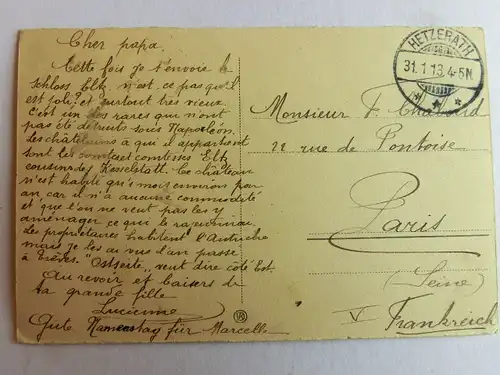 Cher papa.
Cette fois je t'envoie le
schloss Eltz, n'est ce pas qu'il
est joli? et surtout très vieux.
C'est un des rares qui n'ont
pas été détruits sous Napoléon.
Les châtelains à qui il appartient
sont les comtesses Eltz
cousins des Kesselstatt. Ce château
n'est habité qu'1 mois environ par
an car il n'a aucune commodité
et que l'on ne veut pas les y
aménager ce qui le
Les propriétaires habitent l'Autriche
mais je les ai vus l'an passé
à Trèves. "Ostseite" veut dire côté Est.
Au revoir et baisers de
ta grande fille
Lucienne
Gute Namenstag für Marcelle
HETZERATH
31.1.13.4-5N.
Monsieur F.
22 rue de Pontoise
Paris
(Seine)
V Frankreich